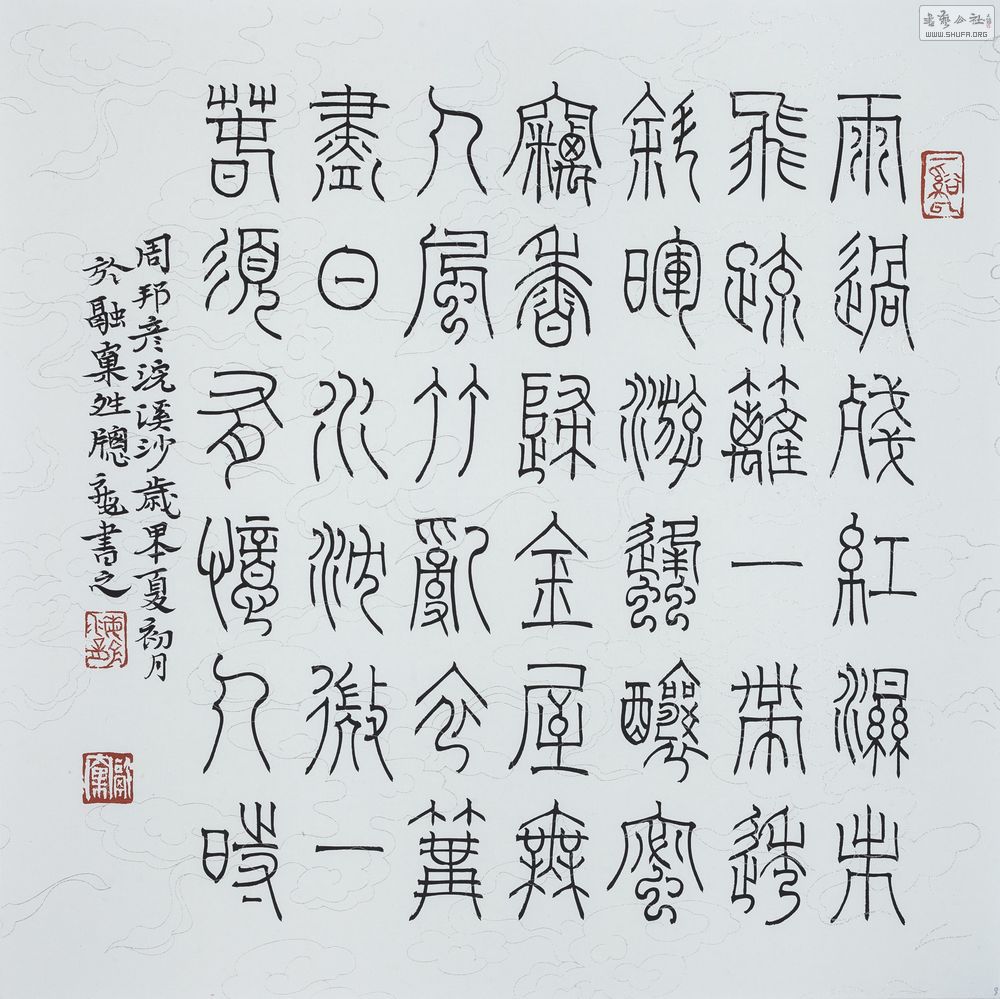 書藝公社
WWW.SHUFA.ORG
雨過殘紅濕未
飛疏籬一帶透
斜暉游蜂釀蜜
竊香歸金屋無
人風竹亂衣篝
盡日水沈微一
春須有憶人時
周邦彥浣溪沙歲夏初月
於融窠牕書之